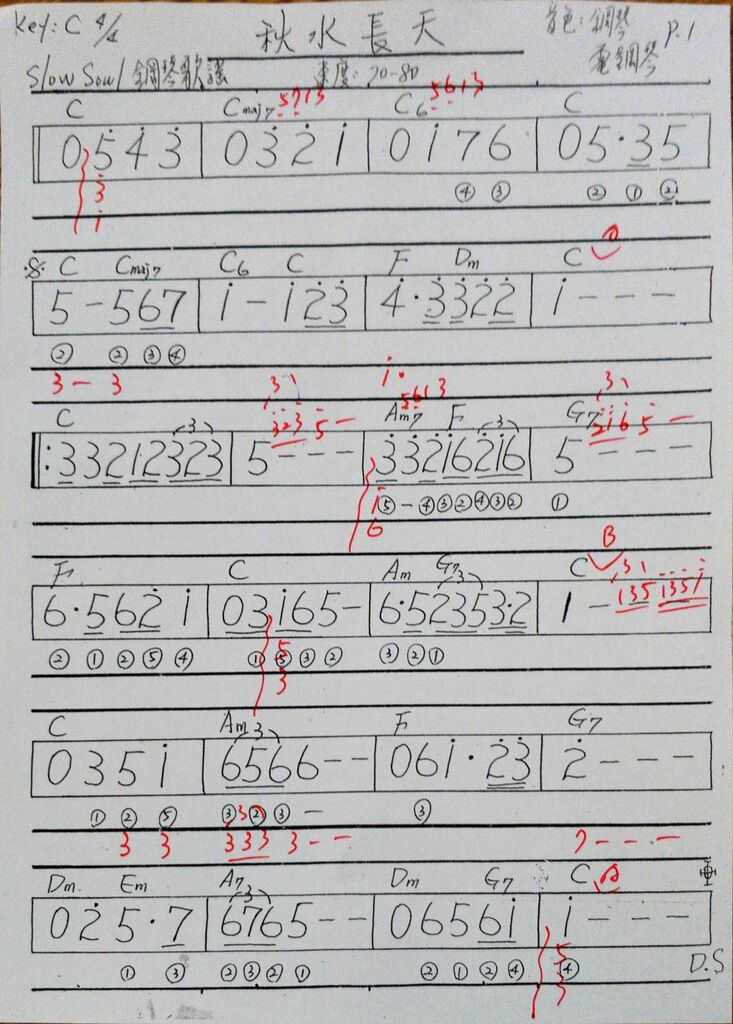 Key: C 4/4 秋水長天 音色: 鋼琴 P.1
電鋼琴
Slow Soul 鋼琴歌譜 速度: 70-80
C Cmaj7 5713 C6 5613 C
0 5̇ 4̇ 3̇ | 0 3̇ 2̇ 1̇ | 0 1̇ 7 6 | 0 5 · 3 5
3̇ ④ ③ ② ① ②
1̇
𝄋 C Cmaj7 C6 C F Dm C A
5 - 5 6 7 | 1̇ - 1̇ 2̇ 3̇ | 4̇ · 3̇ 3̇ 2̇ 2̇ | 1̇ - - -
② ② ③ ④
3 - 3 1̇ ·
C 3 3 2 3 5 - Am7 5613 F G7 3 2 1 6 5 -
: 3 3 2 1 2 3 2 3 | 5 - - - | 3̇ 3̇ 2̇ 1̇ 6 2̇ 1̇ 6 | 5 - - -
1̇ ⑤ - ④ ③ ② ④ ③ ② ①
6
B
F C Am G7 3 C 3 1 3 5 1 3 5 1̇
6 · 5 6 2̇ 1̇ | 0 3 1̇ 6 5 - | 6 · 5 2 3 5 3 · 2 | 1 -
② ① ② ⑤ ④ ① ⑤ ③ ② ③ ② ①
5
3
C Am 3 F G7
0 3 5 1̇ | 6 5 6 6 - - | 0 6 1̇ · 2̇ 3̇ | 2̇ - - -
① ② ⑤ ③ 3 ② ③ - ③
3 3 3 3 3 3 - - 7 - - -
Dm Em A7 3 Dm G7 C A 𝄌
0 2̇ 5 · 7 | 6 7 6 5 - - | 0 6 5 6 1̇ | 1̇ - - -
① ③ ② ③ ② ① ② ① ② ④ 5 ④ D.S
3